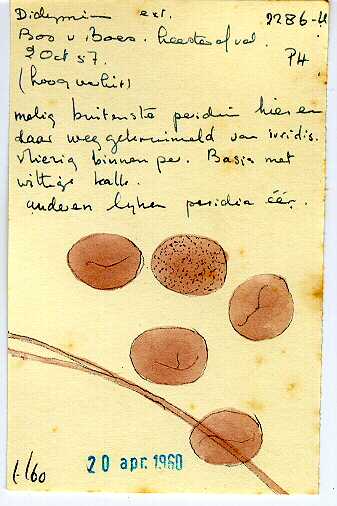 Didymium ext. 2286-U
Boo v Boes. heesterafval.
2 Oct 57. PH
(hoog verhit)
melig buitenste peridium hier en
daar weggekruimeld van iridis.
vliezig binnen per. Basis met
wittige kalk.
anderen lijken peridia éér.
20 apr. 1960
1/60